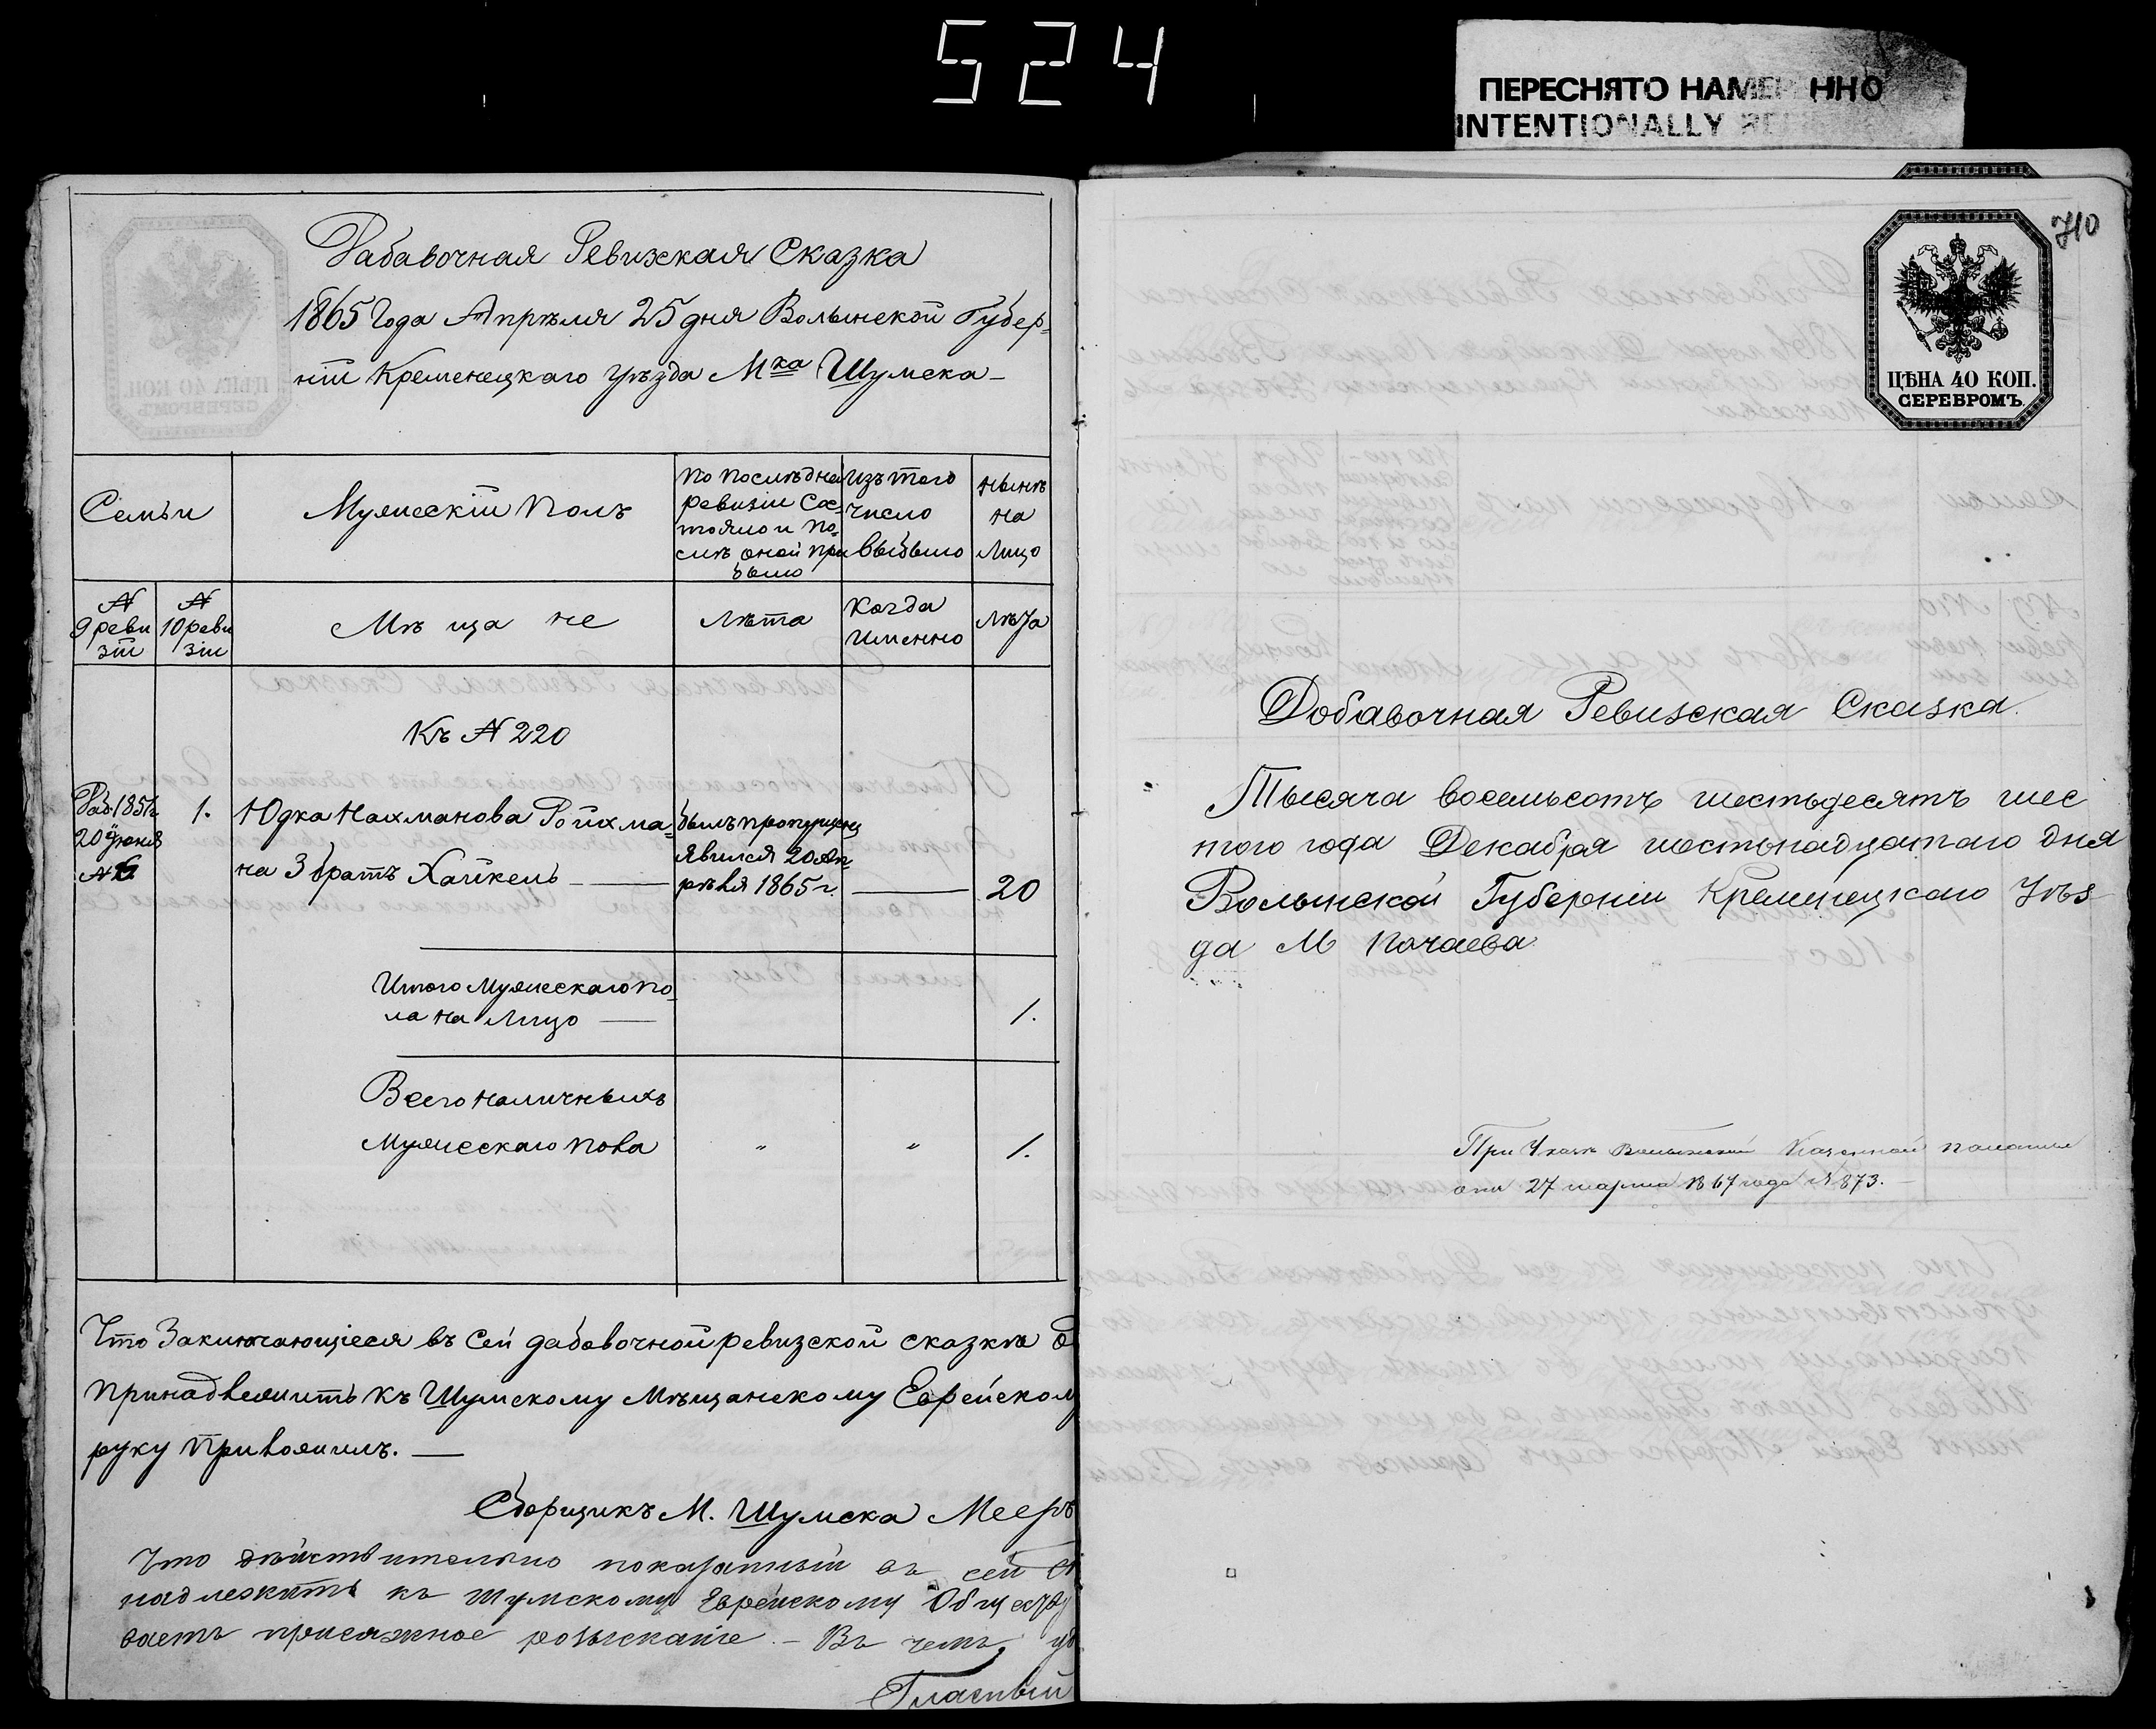 524
ПЕРЕСНЯТО НАМЕ ННО
INTENTIONALLY
Дабавочная Ревизкая Сказка
1865 Года Апрѣля 25 дня Волынской Губер-
нiи Кременецкаго уѣзда Мка Шумска-
Семьи
Мужескiй Полъ
По Послѣдней
ревизiи Сос-
тояло и По-
слѣ оной при
было
Изъ того
число
выбыло
Нынѣ
на
Лицо
№
9 реви
зiи
№
10 реви
зiи
Мѣщане
Лѣта
Когда
Именно
Лѣта
Къ № 220
Доб. 1851 г.
20 Iюня
№ 6
1.
Юдка Нахманова Ройхма-
на 3 братъ Хайкель
былъ пропущенъ
явился 20 Ап
рѣля 1865 г.
20
Итого Мужескаго по-
ла на Лицо
1.
Всего наличныхъ
Мужескаго пола
"
"
1.
Что Заключающiеся въ Сей дабовочной ревизской сказкѣ
Принадлежитъ Къ Шумскому Мѣщанскому Еврейском
руку Приложилъ.
Сборщикъ М. Шумска Мееръ
Что дѣйствительно показанный въ сей
надлежитъ къ Шумскому Еврейскому Общест
ваетъ присяжное розысканiе. - Въ чемъ, уд
Гласный
ЦѢНА 40 КОП.
СЕРЕБРОМЪ.
710
ЦѢНА 40 КОП.
СЕРЕБРОМЪ.
Добавочная Ревизская Сказка.
Тысяча восемьсотъ шестьдесятъ шес
того года Декабря шестьнадцатаго дня
Волынской Губернiи Кременецкаго Уѣз
да М Почаева
При Указѣ Волынской Казенной палаты
отъ 27 марта 1867 года № 873.